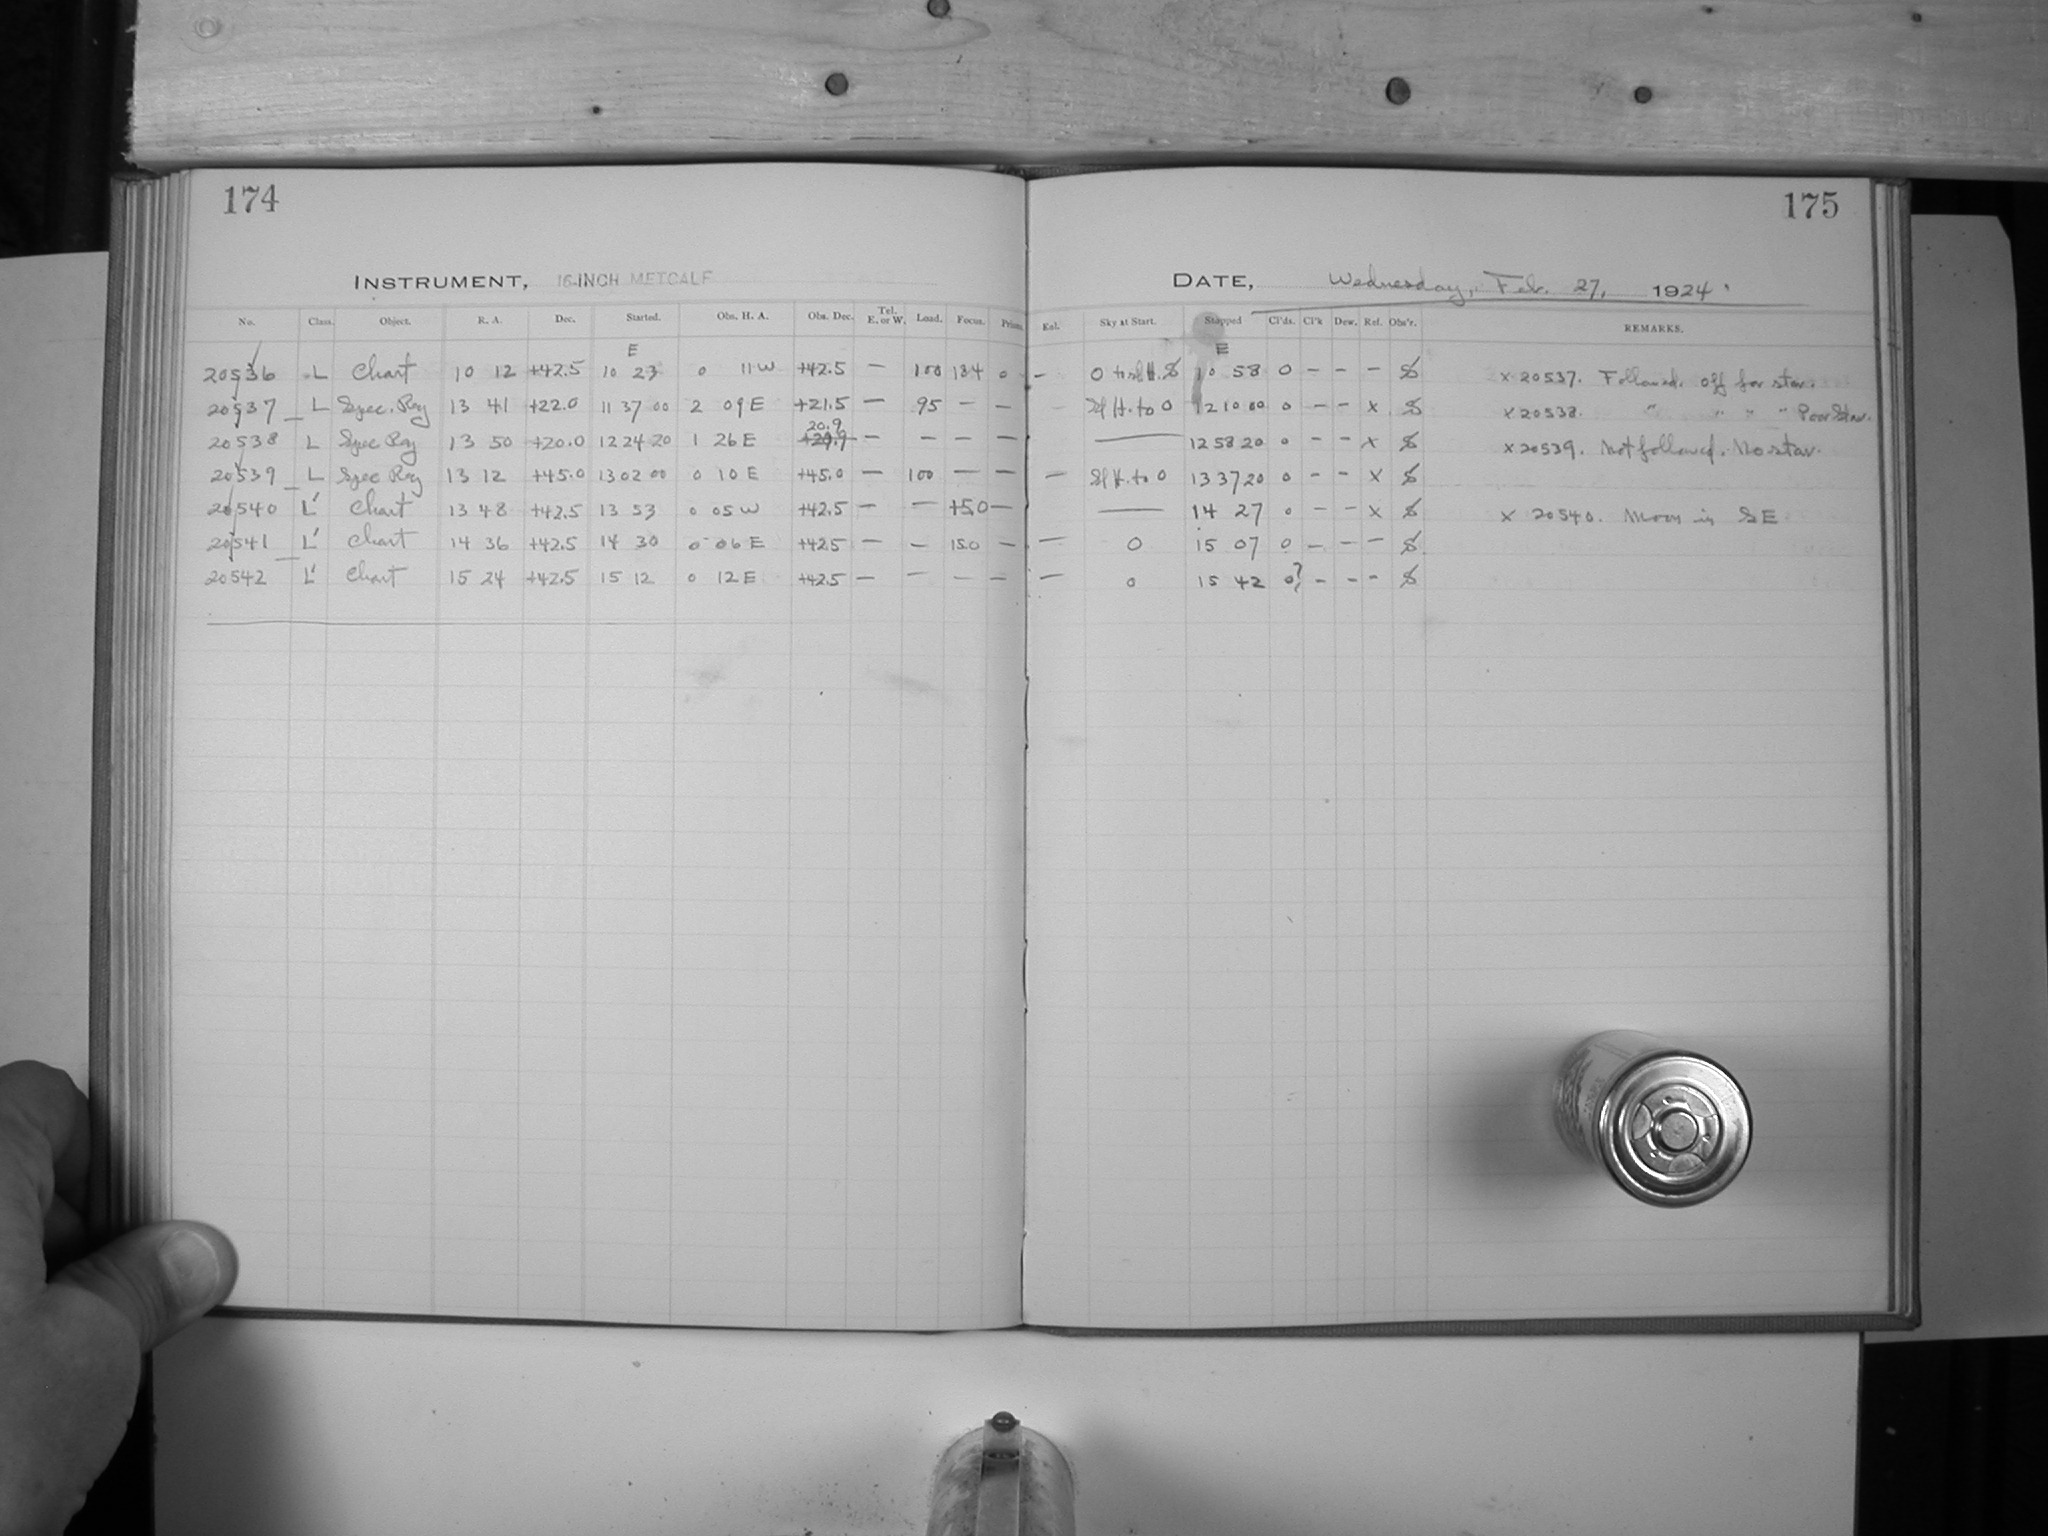 174
175
INSTRUMENT, 16-INCH METCALF
DATE, Wednesday, Feb. 27, 1924.
No. Class. Object. R. A. Dec. Started. Obs. H. A. Obs. Dec. Tel. E. or W. Load. Focus. Prism. Sky at Start. Stopped Cl'ds. Cl'k Dew. Ref. Obs'r. REMARKS.
E E
20536 L Chart 10 12 +42.5 10 23 0 11 W +42.5 — 100 134 0 – 10 58 0 – – – × 20537. Followed. Off for star.
20537 L Spec. Reg 13 41 +22.0 11 37 00 2 09 E +21.5 — 95 – – Sl H. to 0 12 10 00 0 – – × × 20538. " " " " Poor Star.
20.9
20538 L Spec Reg 13 50 +20.0 12 24 20 1 26 E — – – – – — 12 58 20 0 – – × × 20539. Not followed. No star.
20539 L Spec Reg 13 12 +45.0 13 02 00 0 10 E +45.0 — 100 – – – Sl H. to 0 13 37 20 0 – – ×
20540 L' Chart 13 48 +42.5 13 53 0 05 W +42.5 — – +5.0 – — 14 27 0 – – × × 20540. Moon in SE
20541 L' Chart 14 36 +42.5 14 30 0 06 E +42.5 — – 15.0 – – 0 15 07 0 – – –
20542 L' Chart 15 24 +42.5 15 12 0 12 E +42.5 — – – – – 0 15 42 0? – – –